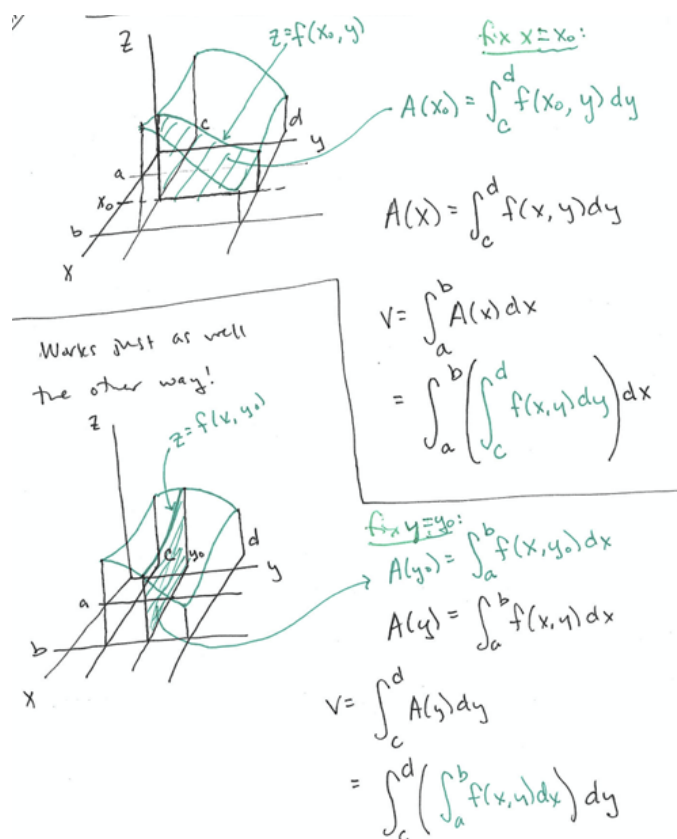 z
z=f(x₀,y)
fix x=x₀:
A(x₀) = ∫_c^d f(x₀,y) dy
c
d
y
a
x₀
b
x
A(x) = ∫_c^d f(x,y) dy
V = ∫_a^b A(x) dx
= ∫_a^b (∫_c^d f(x,y) dy) dx
Works just as well
the other way!
z
z=f(x,y₀)
c
y₀
d
y
a
b
x
fix y=y₀:
A(y₀) = ∫_a^b f(x,y₀) dx
A(y) = ∫_a^b f(x,y) dx
V = ∫_c^d A(y) dy
= ∫_c^d (∫_a^b f(x,y) dx) dy